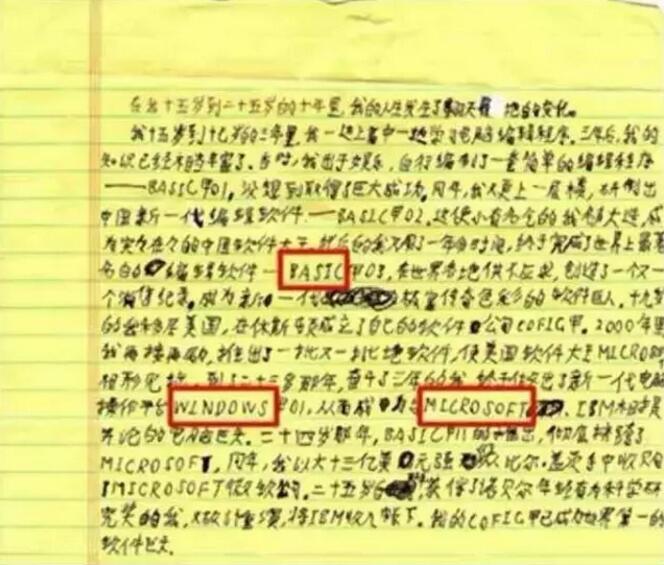 在我十五岁到二十五岁的十年里,我的人生发生了翻天覆地的变化。
我十五岁到十七岁的三年里,我一边上高中一边学习电脑编辑程序。三年后,我的
知识已经相当丰富了。当时,我出于娱乐,自行编制了一套简单的编辑程序
——BASIC甲01,没想到取得了巨大成功。同年,我又更上一层楼,研制出
中国新一代编辑软件——BASIC甲02。这使小有名气的我名声大造,成
为实实在在的中国软件大王。然后的我又用了一年的时间,终于完成了世界上最著
名的编辑软件—BASIC甲03,在世界各地供不应求,创造了一个又一
个销售纪录。成为新一代传奇色彩的软件巨人。十九岁
的我移居美国,在休斯顿成立了自己的软件公司COFIG甲。2000年里
我再接再励,推出了一批又一批地软件,使美国软件大王MICRO
相形见拙。到了二十三岁那年,奋斗了三年的我,终于推出了新一代电脑
操作平台WINDOWS甲01,从而成为与MICROSOFT、IBM相提
并论的电脑巨头。二十四岁那年,BASIC甲11的推出,彻底挤跨了
MICROSOFT,同年,我以大十三亿美元强 从比尔·盖茨手中收购
了MICROSOFT微软公司。二十五岁 获得了诺贝尔年轻有为科学研
究奖的我,又 将IBM收入帐下。我的COFIG甲已成为世界第一的
软件巨头。